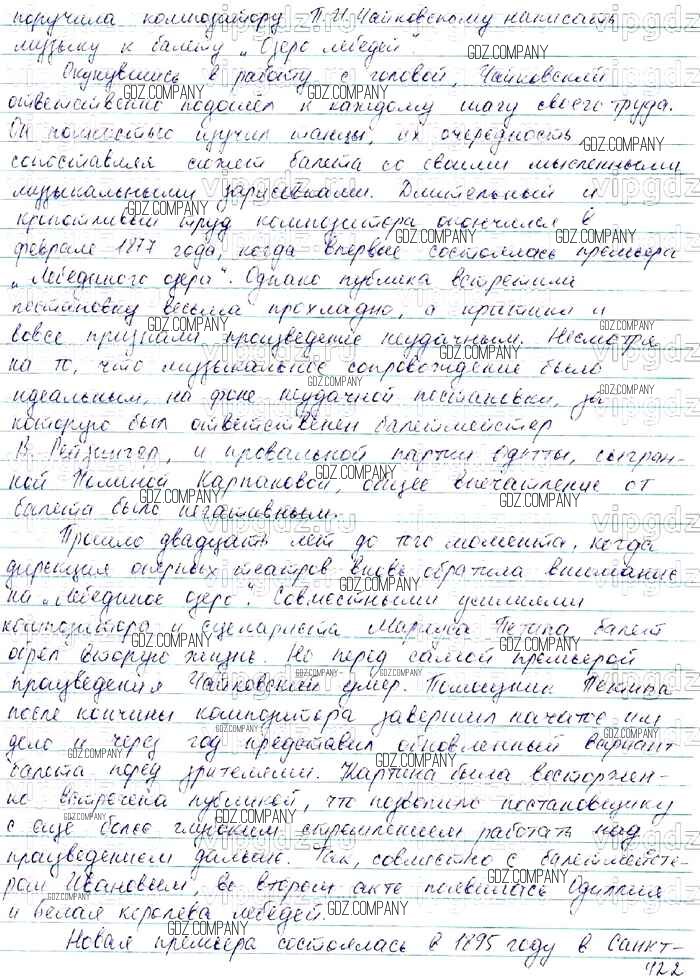 поручила композитору П.И.Чайковскому написать
музыку к балету „Озеро лебедей".
Окунувшись в работу с головой, Чайковский
ответственно подошёл к каждому шагу своего труда.
Он полностью изучил танцы, их очередность,
сопоставляя сюжет балета со своими мысленными
музыкальными зарисовками. Длительный и
кропотливый труд композитора окончился в
феврале 1877 года, когда впервые состоялась премьера
„Лебединого озера". Однако публика встретила
постановку весьма прохладно, а критики и
вовсе признали произведение неудачным. Несмотря
на то, что музыкальное сопровождение было
идеальным, на фоне неудачной постановки, за
которую был ответственен балетмейстер
В. Рейзингер, и провальной партии Одетты, сыгран-
ной Полиной Карпаковой, общее впечатление от
балета было негативным.
Прошло двадцать лет до того момента, когда
дирекция оперных театров вновь обратила внимание
на „Лебединое озеро". Совместными усилиями
композитора и сценариста Мариуса Петипа балет
обрёл вторую жизнь. Но перед самой премьерой
произведения Чайковский умер. Помощник Петипа
после кончины композитора завершил начатое им
дело и через год представил обновленный вариант
балета перед зрителями. Картина была восторжен-
но встречена публикой, что позволило постановщику
с еще более глубоким стремлением работать над
произведением дальше. Так, совместно с балетмейсте-
ром Ивановым, во втором акте появилась Одиллия
и белая королева лебедей.
Новая премьера состоялась в 1895 году в Санкт-
422
GDZ.COMPANY
vipgdz.ru